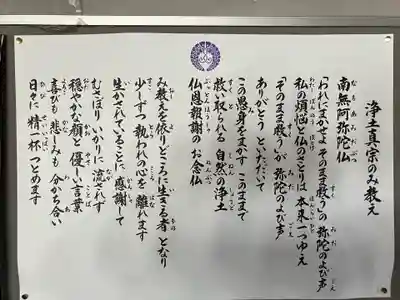 浄土真宗のみ教え
南無阿弥陀仏
「われにまかせよ そのまま救う」の 弥陀のよび声
私の煩悩と仏のさとりは 本来一つゆえ
「そのまま救う」が 弥陀のよび声
ありがとう といただいて
この愚身をまかす このままで
救い取られる 自然の浄土
仏恩報謝の お念仏
み教えを依りどころに生きる者 となり
少しずつ 執われの心を 離れます
生かされていることに 感謝して
むさぼり いかりに 流されず
穏やかな顔と 優しい言葉
喜びも 悲しみも 分かち合い
日々に 精一杯 つとめます